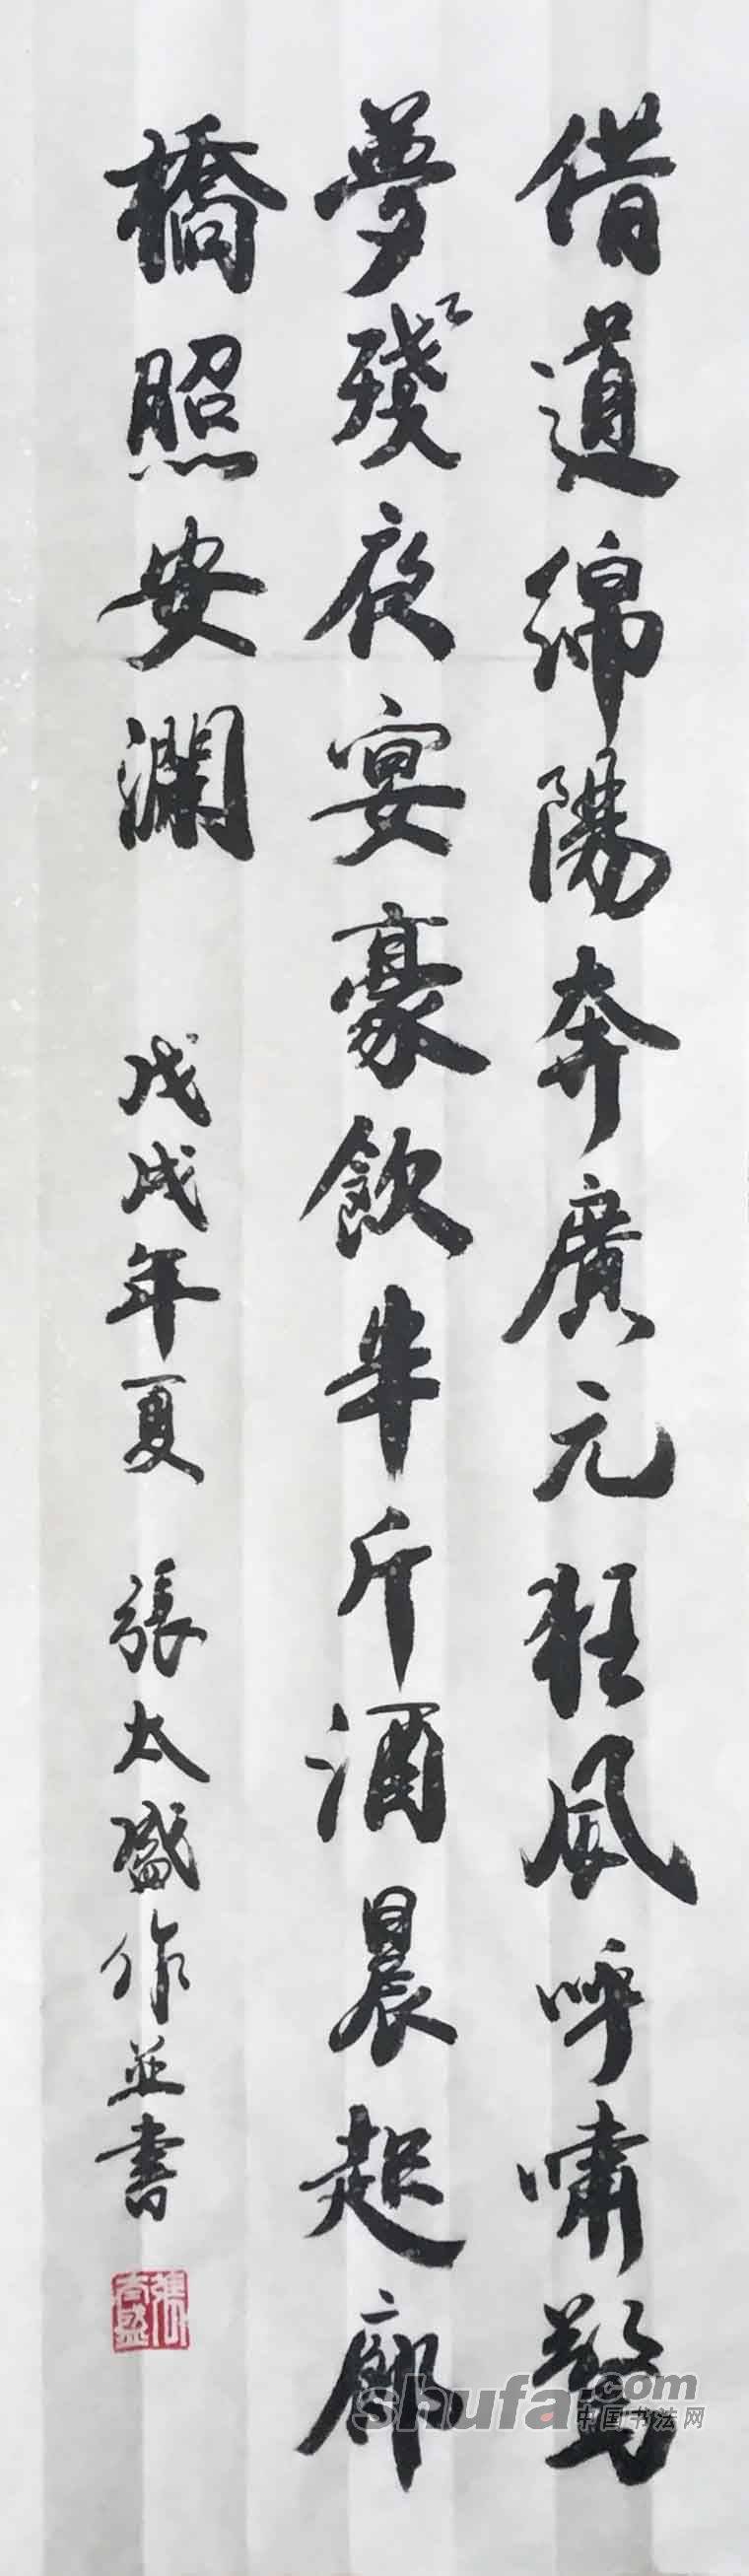 借道綿陽奔廣元狂風呼嘯驚
夢殘夜宴豪飲半斤酒晨起廊
橋照安瀾 戊戌年夏 張太盛作並書
張太盛
shufa.com
中国书法网